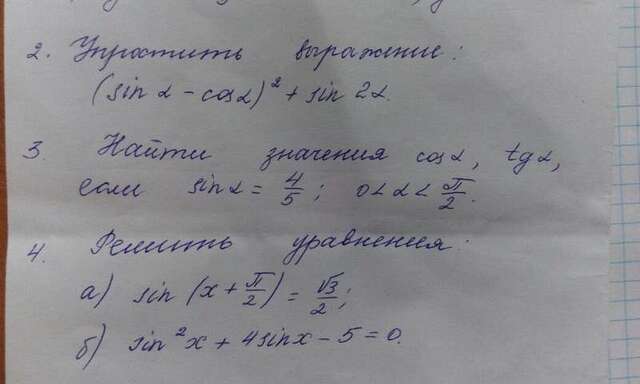 2. Упростить выражение:
(sin α - cos α)² + sin 2α.
3. Найти значения cos α, tg α,
если sin α = 4/5; 0 < α < π/2.
4. Решить уравнения:
а) sin (x + π/2) = √3/2;
б) sin² x + 4 sin x - 5 = 0.